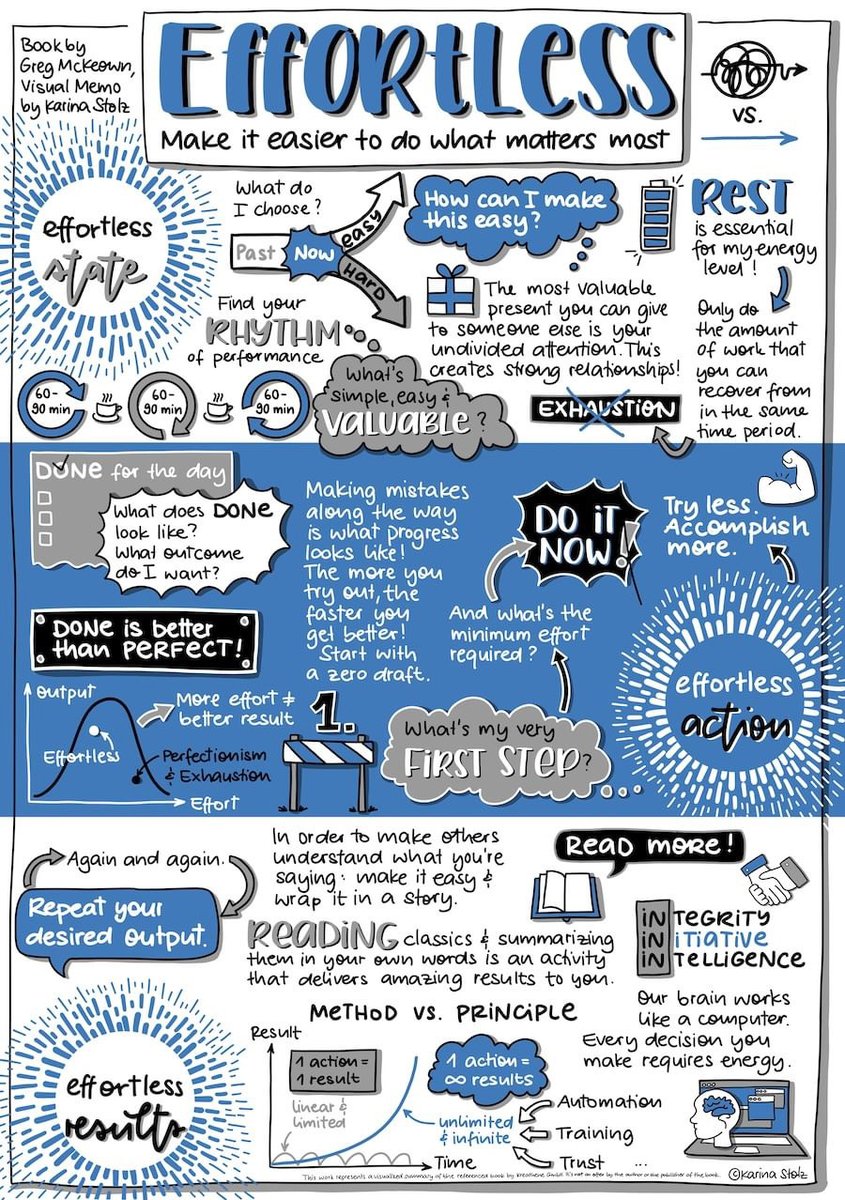 Book by
Greg McKeown,
Visual Memo
by Karina Stolz
EFFORTLESS
Make it easier to do what matters most
vs.
effortless
state
What do
I choose?
Past
Now
easy
HARD
How can I make
this easy?
REST
is essential
for my energy
level!
Find your
RHYTHM
of performance
The most valuable
present you can give
to someone else is your
undivided attention. This
creates strong relationships!
Only do
the amount
of work that
you can
recover from
in the same
time period.
60-
90 min
60-
90 min
60-
90 min
What's
simple, easy &
VALUABLE?
EXHAUSTION
DONE for the day
What does DONE
look like?
What outcome
do I want?
Making mistakes
along the way
is what progress
looks like!
The more you
try out, the
faster you
get better!
Start with
a zero draft.
DO IT
NOW!
Try less.
Accomplish
more.
And what's the
minimum effort
required?
DONE is better
than PERFECT!
effortless
action
Output
More effort ≠
better result
Effortless
Perfectionism
& Exhaustion
Effort
1.
What's my very
FIRST STEP?
Again and again.
Repeat your
desired output.
In order to make others
understand what you're
saying: make it easy &
wrap it in a story.
READ MORE!
READING classics & summarizing
them in your own words is an activity
that delivers amazing results to you.
INTEGRITY
INITIATIVE
INTELLIGENCE
Our brain works
like a computer.
Every decision you
make requires energy.
effortless
results
METHOD VS. PRINCIPLE
Result
1 action =
1 result
linear &
limited
1 action =
∞ results
unlimited
& infinite
Automation
Training
Trust ...
Time
This work represents a visualised summary of the referenced book by
It's not an offer by the author or the publisher of the book.
©Karina Stolz